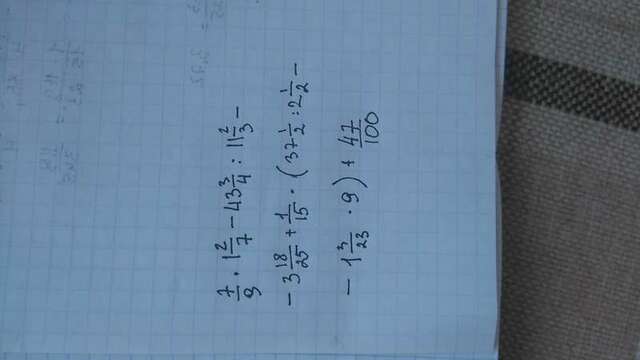 7/9 · 1 2/7 − 43 3/4 : 11 2/3 −
− 3 18/25 + 1/15 · (37 1/2 : 2 1/2 −
− 1 3/23 · 9) + 47/100